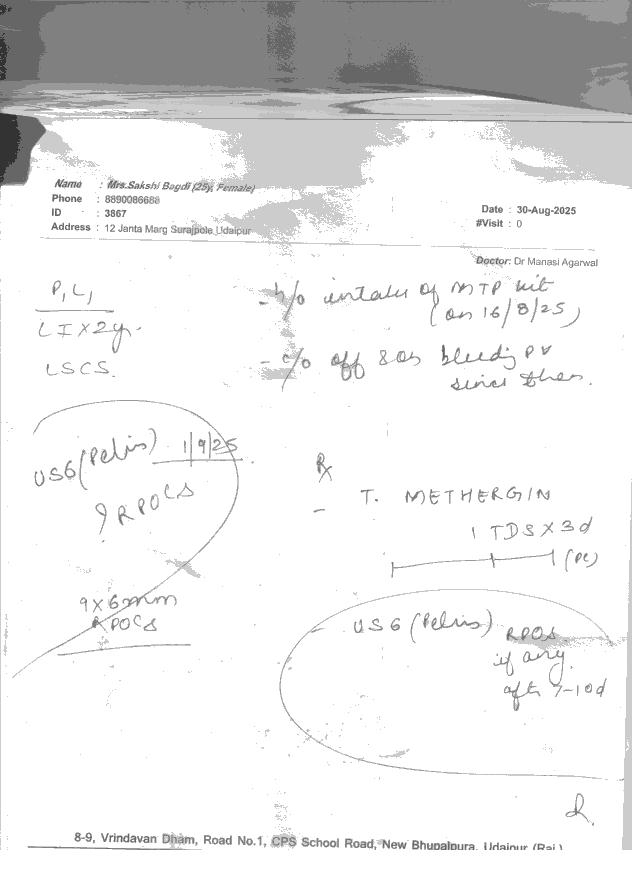 Name : Mrs.Sakshi Bagdi (25y, Female)
Phone : 8890086688
ID : 3867
Address : 12 Janta Marg Surajpole Udaipur
Date : 30-Aug-2025
#Visit : 0
Doctor: Dr Manasi Agarwal
P1L1
LI X 2y.
LSCS.
- h/o intake of MTP kit
(on 16/8/25)
- c/o off & on bleeding PV
since then.
USG (Pelvis) 1/9/25
? RPOCS
9x6mm
RPOCS
Rx
- T. METHERGIN
1 TDS X 3d
(PC)
- USG (Pelvis) RPOS
if any
after 7-10d
8-9, Vrindavan Dham, Road No.1, CPS School Road, New Bhupalpura, Udaipur (Raj.)